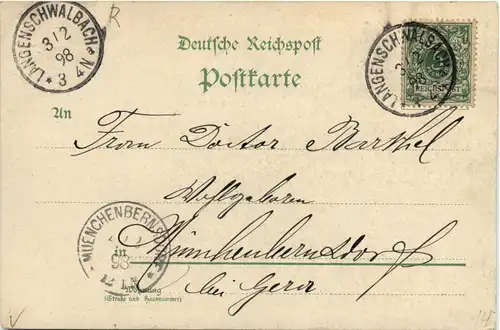 LANGENSCHWALBACH
3 12
98
* 3 4 N
Deutsche Reichspost
Postkarte
LANGENSCHWALBACH
98
REICHSPOST
An
Frau Doctor Barthel
Wohlgeboren
MUENCHENBERNSDORF
98
in Münchenbernsdorf
bei Gera
Wohnung
(Straße und Hausnummer)